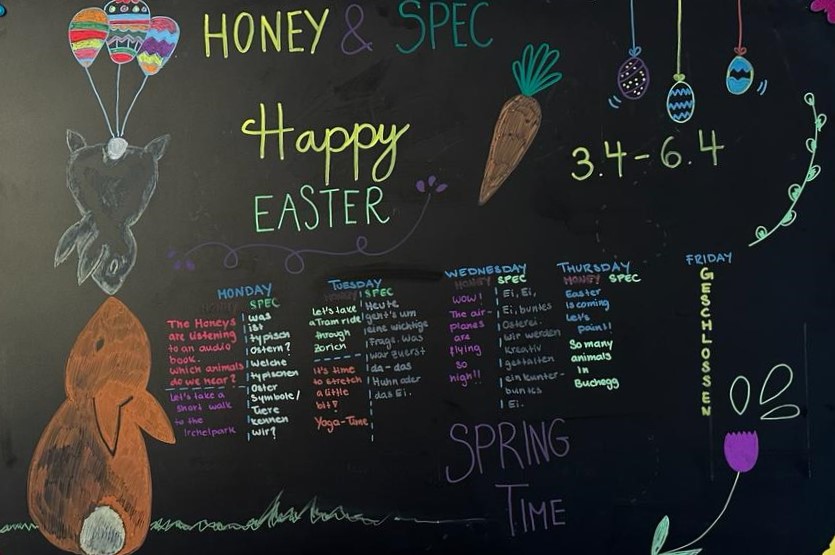 HONEY & SPEC
Happy
EASTER
3.4-6.4
MONDAY
HONEY
The Honeys
are listening
to an audio
book.
Which animals
do we hear?
Let's take a
short walk
to the
Irchelpark
SPEC
Was
ist
typisch
Ostern?
Welche
typischen
Oster
Symbole/
Tiere
kennen
wir?
TUESDAY
HONEY
Let's take
a Tram ride
through
Zürich
It's time
to stretch
a little
bit!
Yoga-Time
SPEC
Heute
geht's um
eine wichtige
Frage. Was
war zuerst
da-das
Huhn oder
das Ei.
WEDNESDAY
HONEY
WOW!
The air-
planes
are
flying
so
high!!
SPEC
Ei, Ei,
Ei, buntes
Osterei.
Wir werden
kreativ
gestalten
ein kunter-
buntes
Ei.
THURSDAY
HONEY SPEC
Easter
is coming
Let's
paint!
So many
animals
in
Buchegg
FRIDAY
GESCHLOSSEN
SPRING
TIME